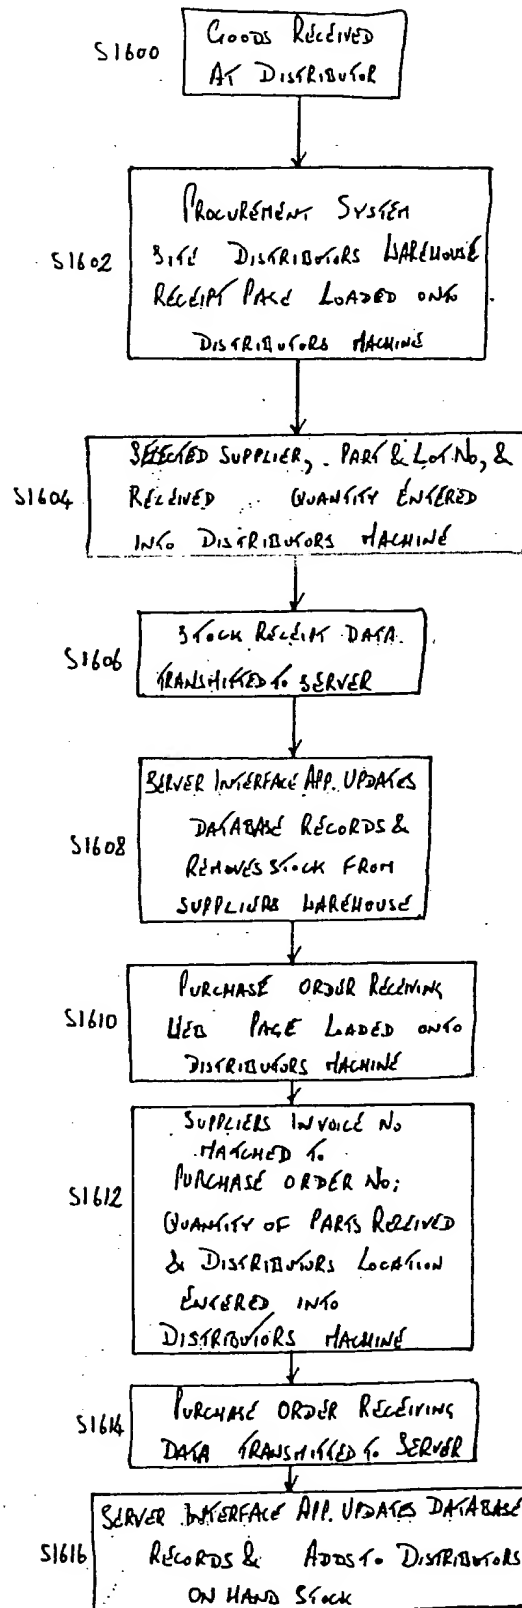 S1600
GOODS RECEIVED
AT DISTRIBUTOR
S1602
PROCUREMENT SYSTEM
SITE DISTRIBUTORS WAREHOUSE
RECEIPT PAGE LOADED ONTO
DISTRIBUTORS MACHINE
S1604
SELECTED SUPPLIER, PART & LOT NO, &
RECEIVED QUANTITY ENTERED
INTO DISTRIBUTORS MACHINE
S1606
STOCK RECEIPT DATA
TRANSMITTED TO SERVER
S1608
SERVER INTERFACE APP. UPDATES
DATABASE RECORDS &
REMOVES STOCK FROM
SUPPLIERS WAREHOUSE
S1610
PURCHASE ORDER RECEIVING
WEB PAGE LOADED ONTO
DISTRIBUTORS MACHINE
S1612
SUPPLIERS INVOICE NO
MATCHED TO
PURCHASE ORDER NO;
QUANTITY OF PARTS RECEIVED
& DISTRIBUTORS LOCATION
ENTERED INTO
DISTRIBUTORS MACHINE
S1614
PURCHASE ORDER RECEIVING
DATA TRANSMITTED TO SERVER
S1616
SERVER INTERFACE APP. UPDATES DATABASE
RECORDS & ADDS TO DISTRIBUTORS
ON HAND STOCK